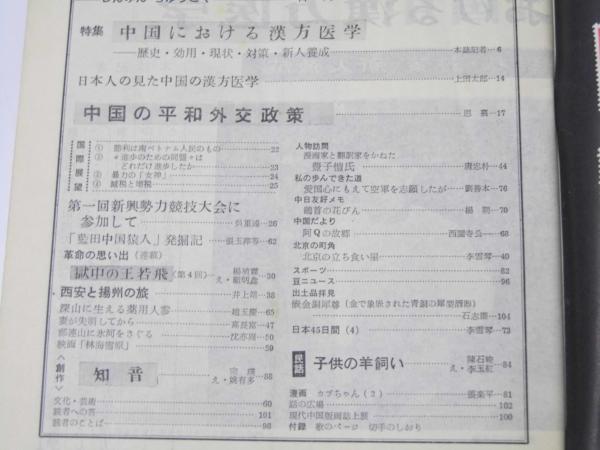 特集 中国における漢方医学
——歴史・効用・現状・対策・新人養成 本誌記者 6
日本人の見た中国の漢方医学 上田太郎 14
中国の平和外交政策 思慕 17
国際展望
① 勝利は南ベトナム人民のもの 22
② “進歩のための同盟”は
どれだけ進歩したか 23
③ 暴力の「女神」 24
④ 減税と増税 25
第一回新興勢力競技大会に
参加して 呉重遠 26
「藍田中国猿人」発掘記 張玉萍等 62
革命の思い出（連載）
獄中の王若飛（第4回） 楊植霖 え・ 30
西安と揚州の旅 井上靖 38
深山に生える薬用人参 趙玉慶 65
妻が失明してから 高長富 47
祁連山に氷河をさぐる 沈亦周 50
映画「林海雪原」 59
〈創作〉
知音 え・姚有多 88
文化・芸術 60
読者への答 101
読者のことば 98
人物訪問
漫画家と翻訳家をかねた
豊子愷氏 唐忠朴 44
私の歩んできた道
愛国心にもえて空軍を志願したが 劉善本 76
中日友好メモ
鶴首の花びん 楊朔 70
中国だより
阿Qの故郷 西園寺公一 68
北京の町角
北京の立ち食い屋 李雲琴 40
スポーツ 82
豆ニュース 96
出土品拝見
嵌金銀犀尊（金で象嵌された青銅の犀型酒器）
石志廉 104
日本45日間（4） 李雪琴 73
民話 子供の羊飼い 陳石峻 え・李玉紅 84
漫画 カブちゃん（2） 張楽平 81
話の広場 102
現代中国版画誌上展 100
付録 歌のページ 切手のしおり